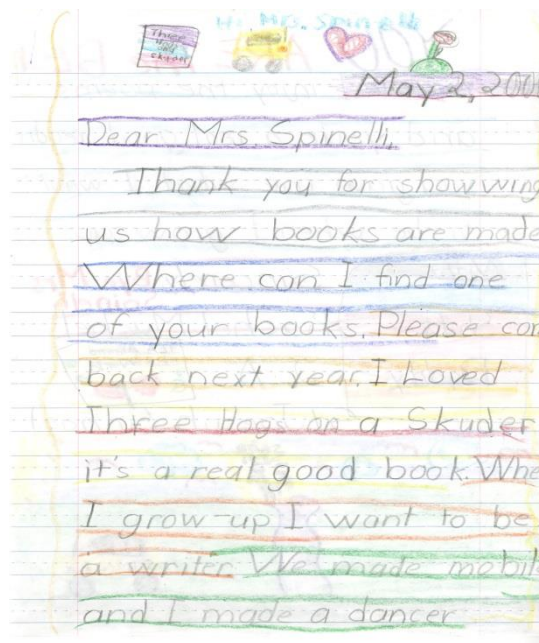 Hi Mrs. Spinelli
Three
Hogs
Skuder
May 2, 200
Dear Mrs Spinelli,
Thank you for showwing
us how books are made
Where can I find one
of your books. Please com
back next year. I Loved
Three Hogs on a Skuder
it's a real good book. Whe
I grow-up I want to be
a writer We made mobil
and I made a dancer